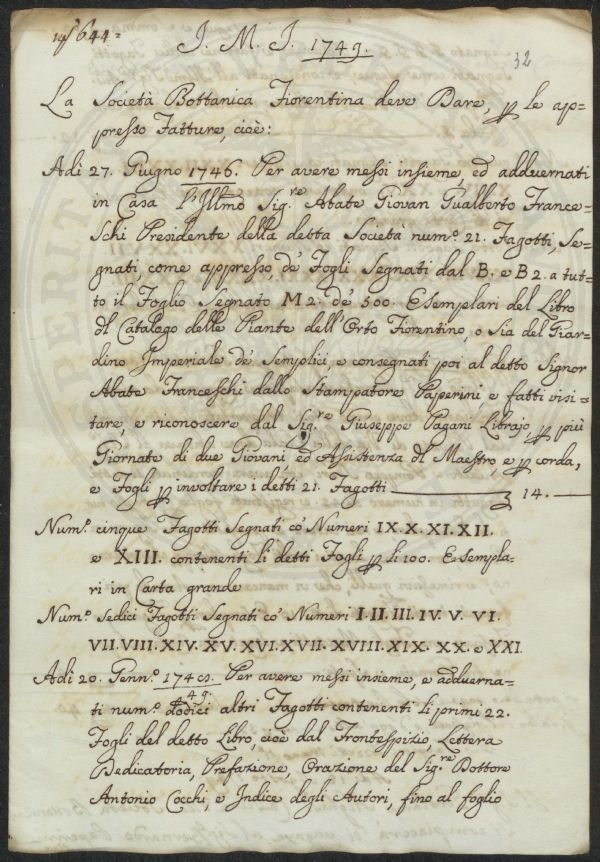 644=
J. M. J. 1749.
32
La Società Bottanica Fiorentina deve Dare, p le ap=
presso Fatture, cioè:
Adi 27. Giugno 1746. Per avere messi insieme, ed adduernati
in Casa l'Illmo Sig.re Abate Giovan Gualberto France=
schi Presidente della detta Società num.o 21. Fagotti, Se=
gnati come appresso, de' Fogli Segnati dal B. e B2. a tut=
to il Foglio Segnato M2. de' 500. Esemplari del Libro
dl Catalogo delle Piante dell'Orto Fiorentino, o sia del Giar=
dino Imperiale de' Semplici, e consegnati poi al detto Signor
Abate Franceschi dallo Stampatore Paperini, e fatti visi=
tare, e riconoscere dal Sig.re Giuseppe Pagani Librajo, p più
Giornate di due Giovani, ed Assistenza dl Maestro, e p corda,
e Fogli p involtare i detti 21. Fagotti 14.
Num.o cinque Fagotti Segnati co' Numeri IX. X. XI. XII.
e XIII. contenenti li detti Fogli p li 100. Esempla=
ri in Carta grande
Num.o Sedici Fagotti Segnati co' Numeri I. II. III. IV. V. VI.
VII. VIII. XIV. XV. XVI. XVII. XVIII. XIX. XX. e XXI.
Adi 20. Genn.o 174 Per avere messi insieme, e adduerna=
49.
ti num.o dodici altri Fagotti contenenti li primi 22.
Fogli del detto Libro, cioè dal Frontespizio, Lettera
Dedicatoria, Prefazione, Orazione del Sig.re Dottore
Antonio Cocchi, e Indice degli Autori, fino al foglio